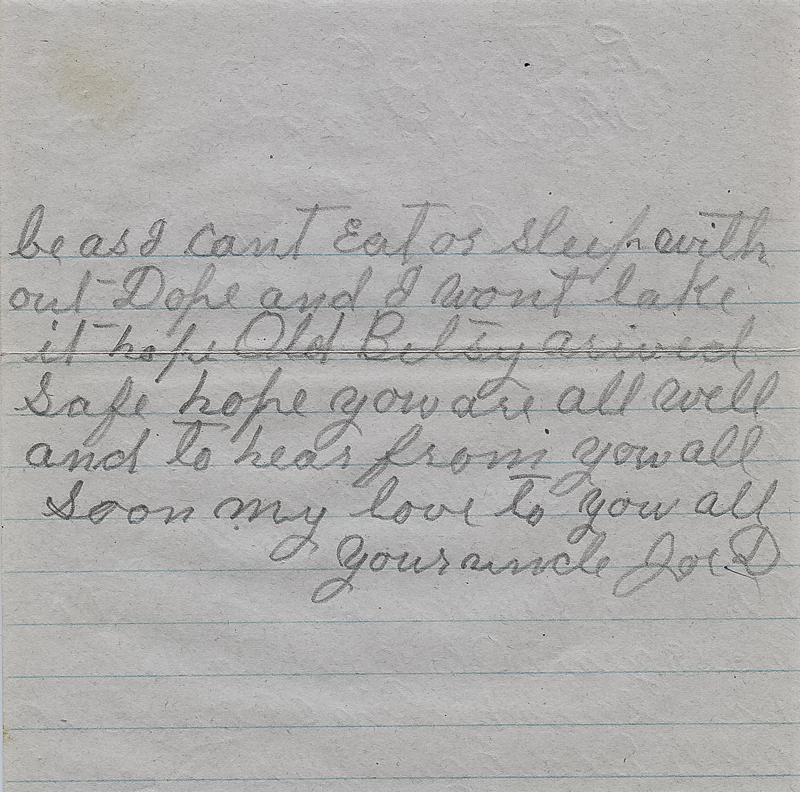 be as I cant Eat or sleep with
out Dope and I wont take
it hope Old Betsy arived
Safe hope you are all well
and to hear from you all
Soon my love to you all
Your uncle Joe D